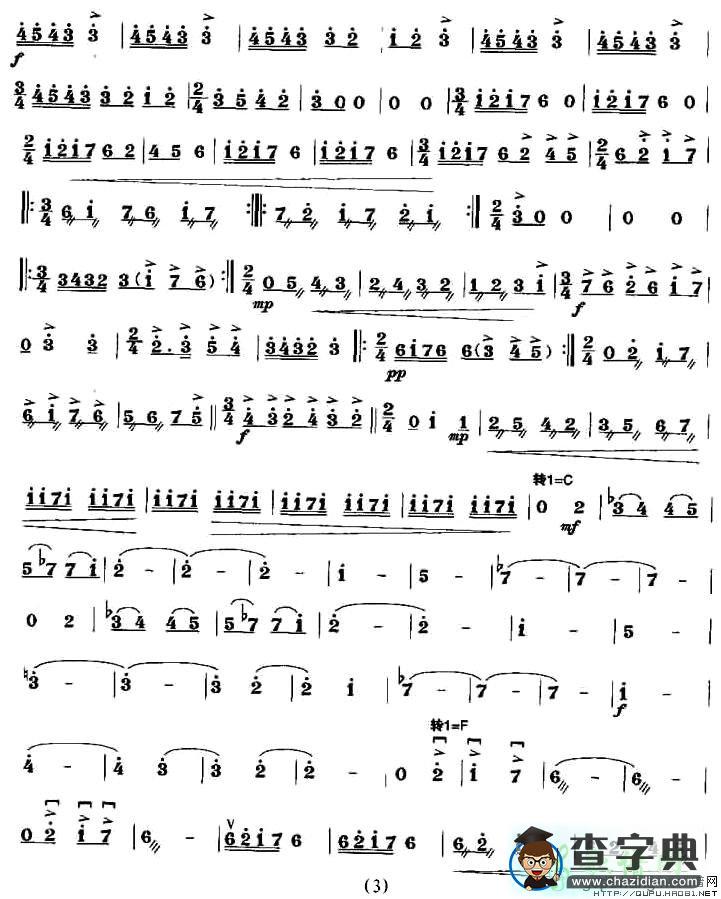 4543 3 | 4543 3 | 4543 3 2 | 1 2 3 | 4543 3 | 4543 3 |
f
3/4 4543 3 2 1 2 | 2/4 3 5 4 2 | 3 0 0 | 0 0 | 3/4 1217 6 0 | 1217 6 0 |
2/4 1217 6 2 | 4 5 6 | 1217 6 | 1217 6 | 3/4 1217 6 2 4 5 | 2/4 6 2 1 7 |
‖: 3/4 6 1 7 6 1 7 :‖: 7 2 1 7 2 1 :‖ 2/4 3 0 0 | 0 0 |
‖: 3/4 3432 3 (1 7 6) :‖ 2/4 0 5 4 3 | 2 4 3 2 | 1 2 3 1 | 3/4 7 6 2 6 1 7 |
mp f
0 3 3 | 2/4 2. 3 5 4 | 3432 3 ‖: 2/4 6176 6 (3 4 5) :‖ 2/4 0 2 1 7 |
pp
6 1 7 6 | 5 6 7 5 ‖ 3/4 4 3 2 4 3 2 ‖ 2/4 0 1 1 | 2 5 4 2 | 3 5 6 7 |
f mp
转1=C
1171 1171 | 1171 1171 | 1171 1171 | 1171 1171 | 0 2 | ♭3 4 4 5 |
mf
5 ♭7 7 1 | 2 - | 2 - | 2 - | 1 - | 5 - | ♭7 - | 7 - | 7 - |
0 2 | ♭3 4 4 5 | 5 ♭7 7 1 | 2 - | 2 - | 1 - | 5 - |
♮3 - | 3 - | 3 2 | 2 1 | ♭7 - | 7 - | 7 - | 1 - |
f
转1=F
4 - | 4 3 | 3 2 | 2 - | 0 2 | 1 7 | 6 - | 6 |
0 2 1 7 | 6 - | 62176 | 62176 | 6 2
(3)
查字典
www.chazidian.com
HTTP://QUPU.HAO81.NET